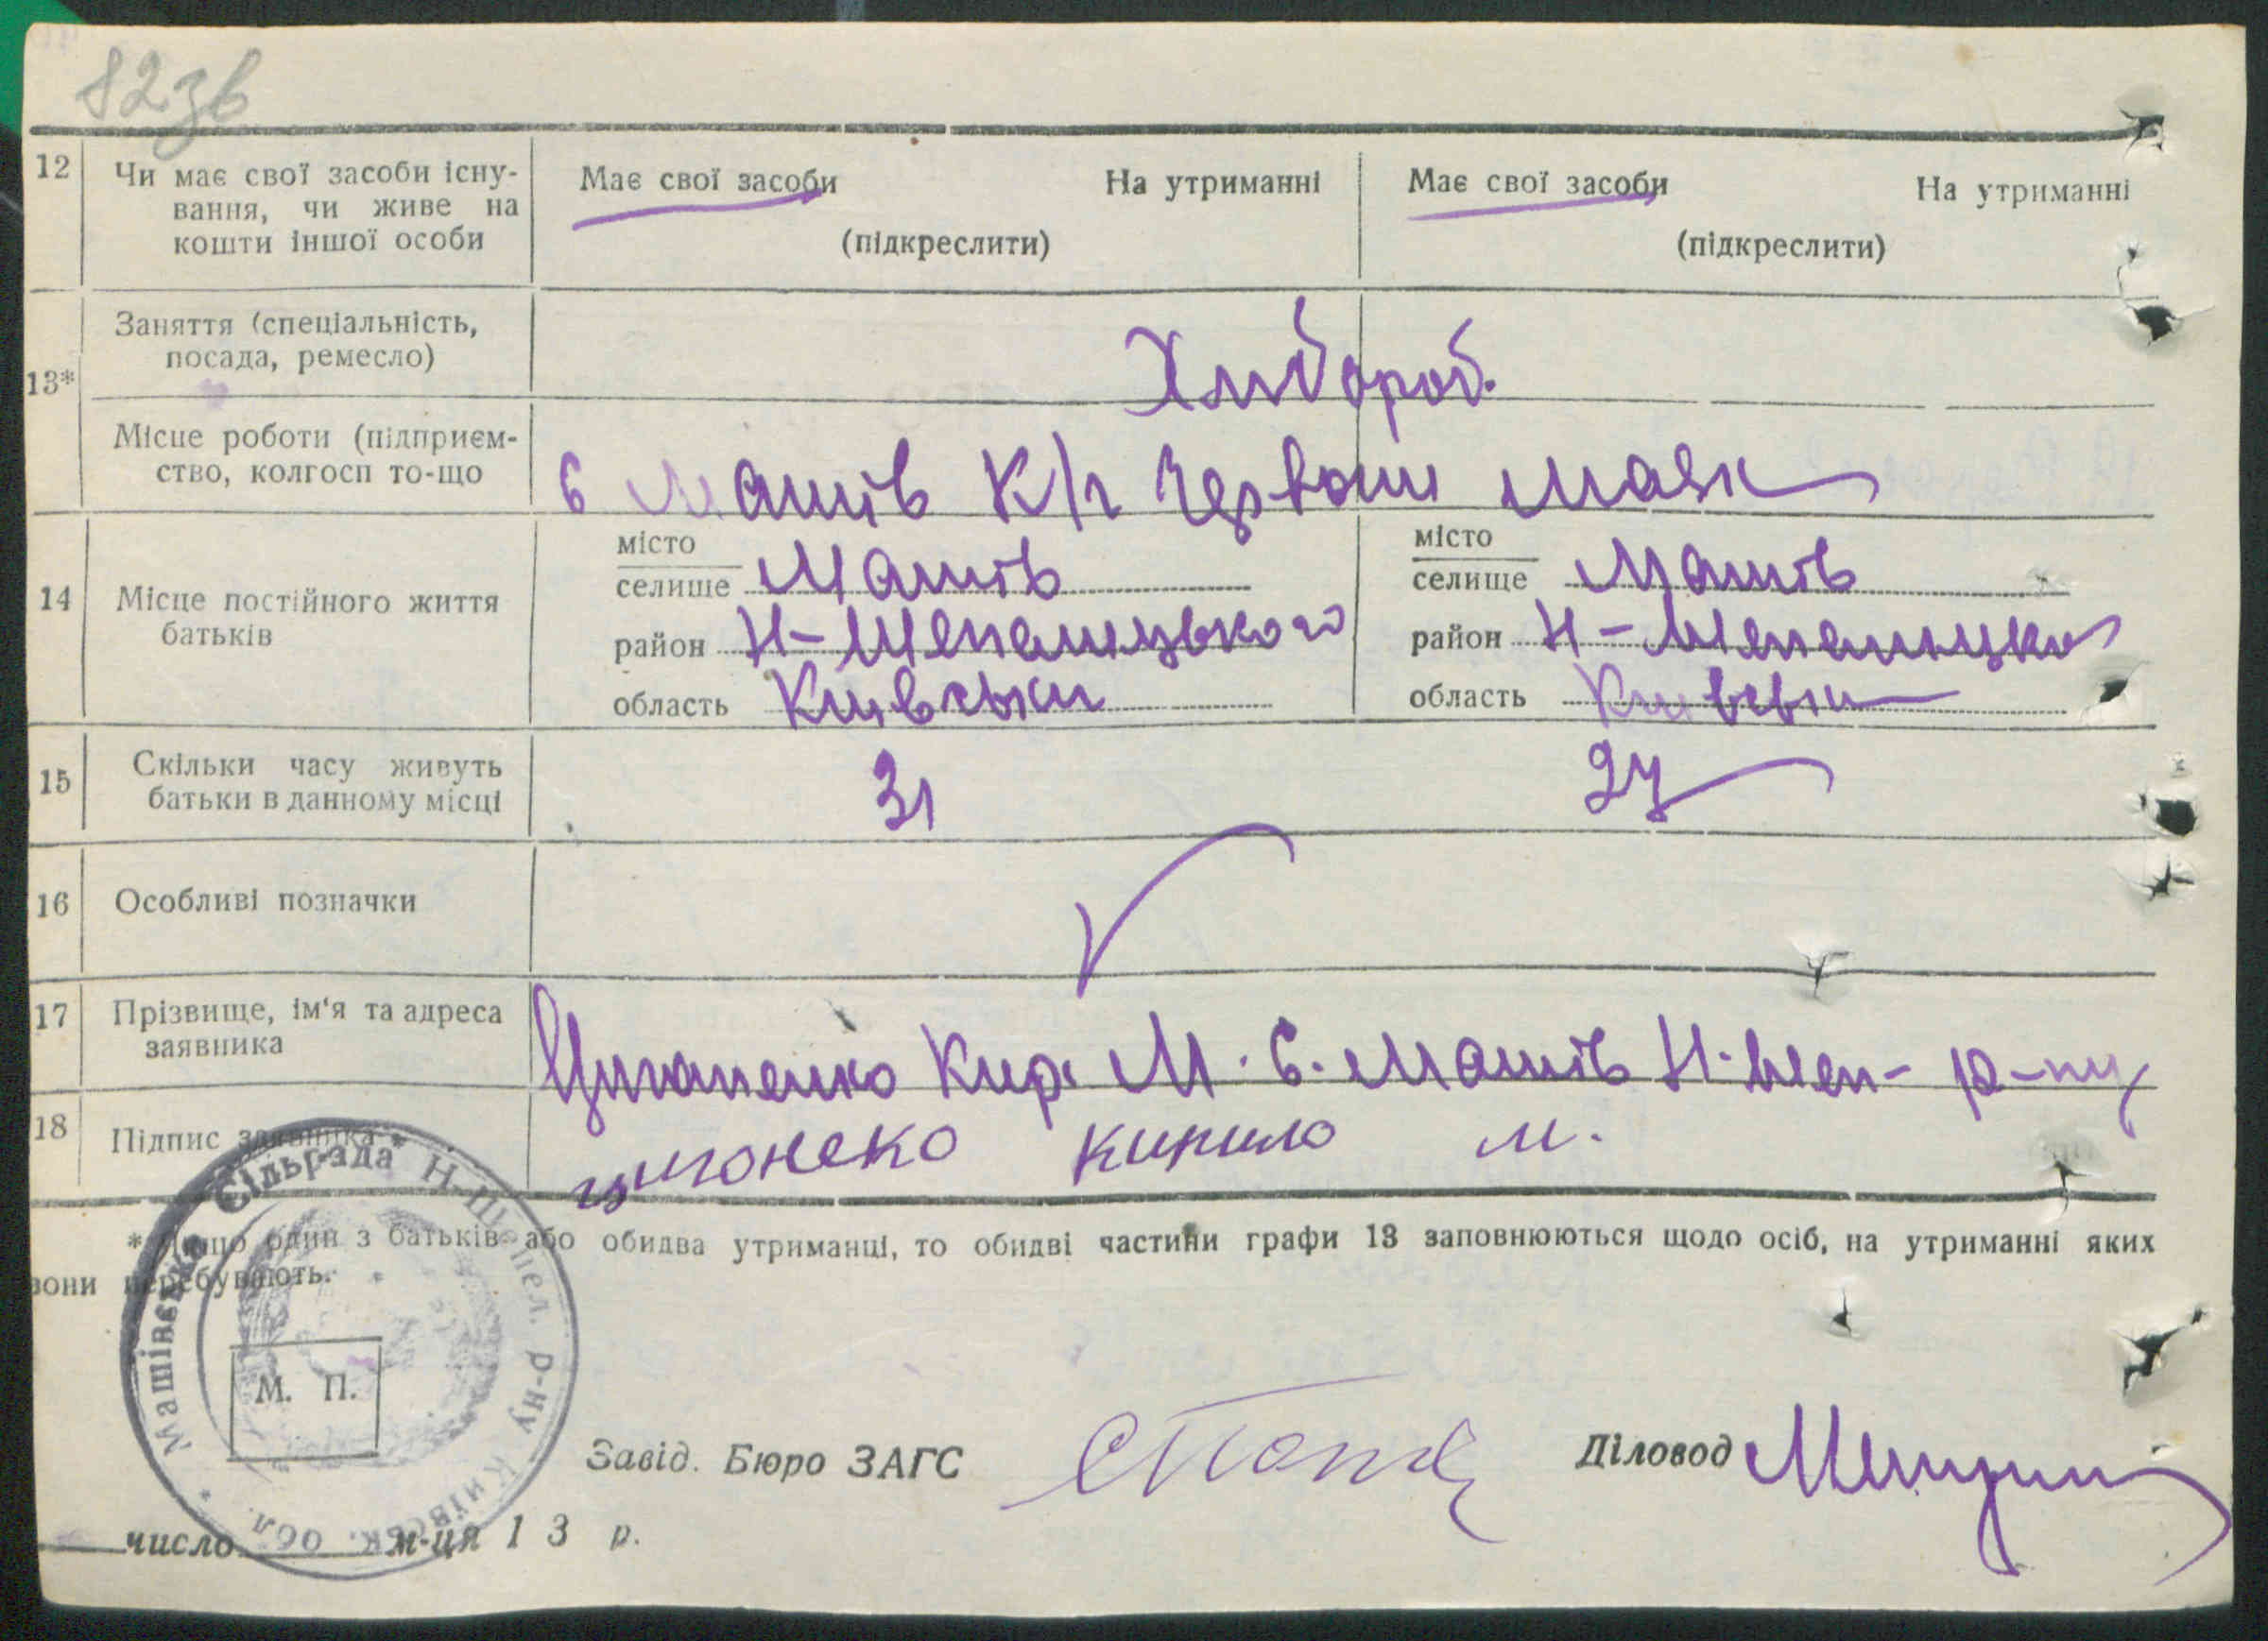 82зв
12 Чи має свої засоби існу- Має свої засоби На утриманні Має свої засоби На утриманні
вання, чи живе на
кошти іншої особи (підкреслити) (підкреслити)
13* Заняття (спеціальність,
посада, ремесло) Хлибороб.
Місце роботи (підприєм-
ство, колгосп то-що с Машів к/г Червони маяк
14 Місце постійного життя
батьків
місто
селище Машів
район Н-Шепелицького
область Киівськи
місто
селище Машів
район Н-Шепелицько
область
15 Скільки часу живуть
батьки в данному місці 31 27
16 Особливі позначки
17 Прізвище, ім'я та адреса
заявника Циганенко Кир. М. с. Машів Н-Шеп- р-ну
18 Підпис заявника цигонеко кирило м.
* Якщо один з батьків або обидва утриманці, то обидві частини графи 13 заповнюються щодо осіб, на утриманні яких
вони перебувають.
Машівська Сільрада * Н-Шепел. р-ну Київськ. обл. *
М. П.
Завід. Бюро ЗАГС Діловод
число м-ця 1 3 р.